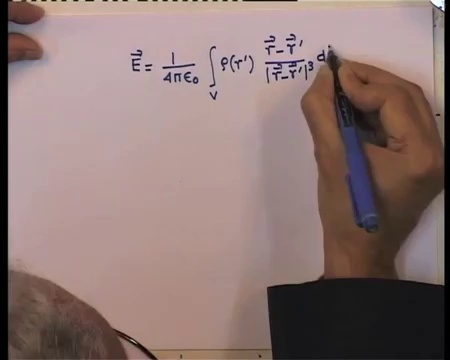 E⃗ = 1/4πϵ₀ ∫_V ρ(r') (r⃗ - r⃗')/|r⃗ - r⃗'|³ d